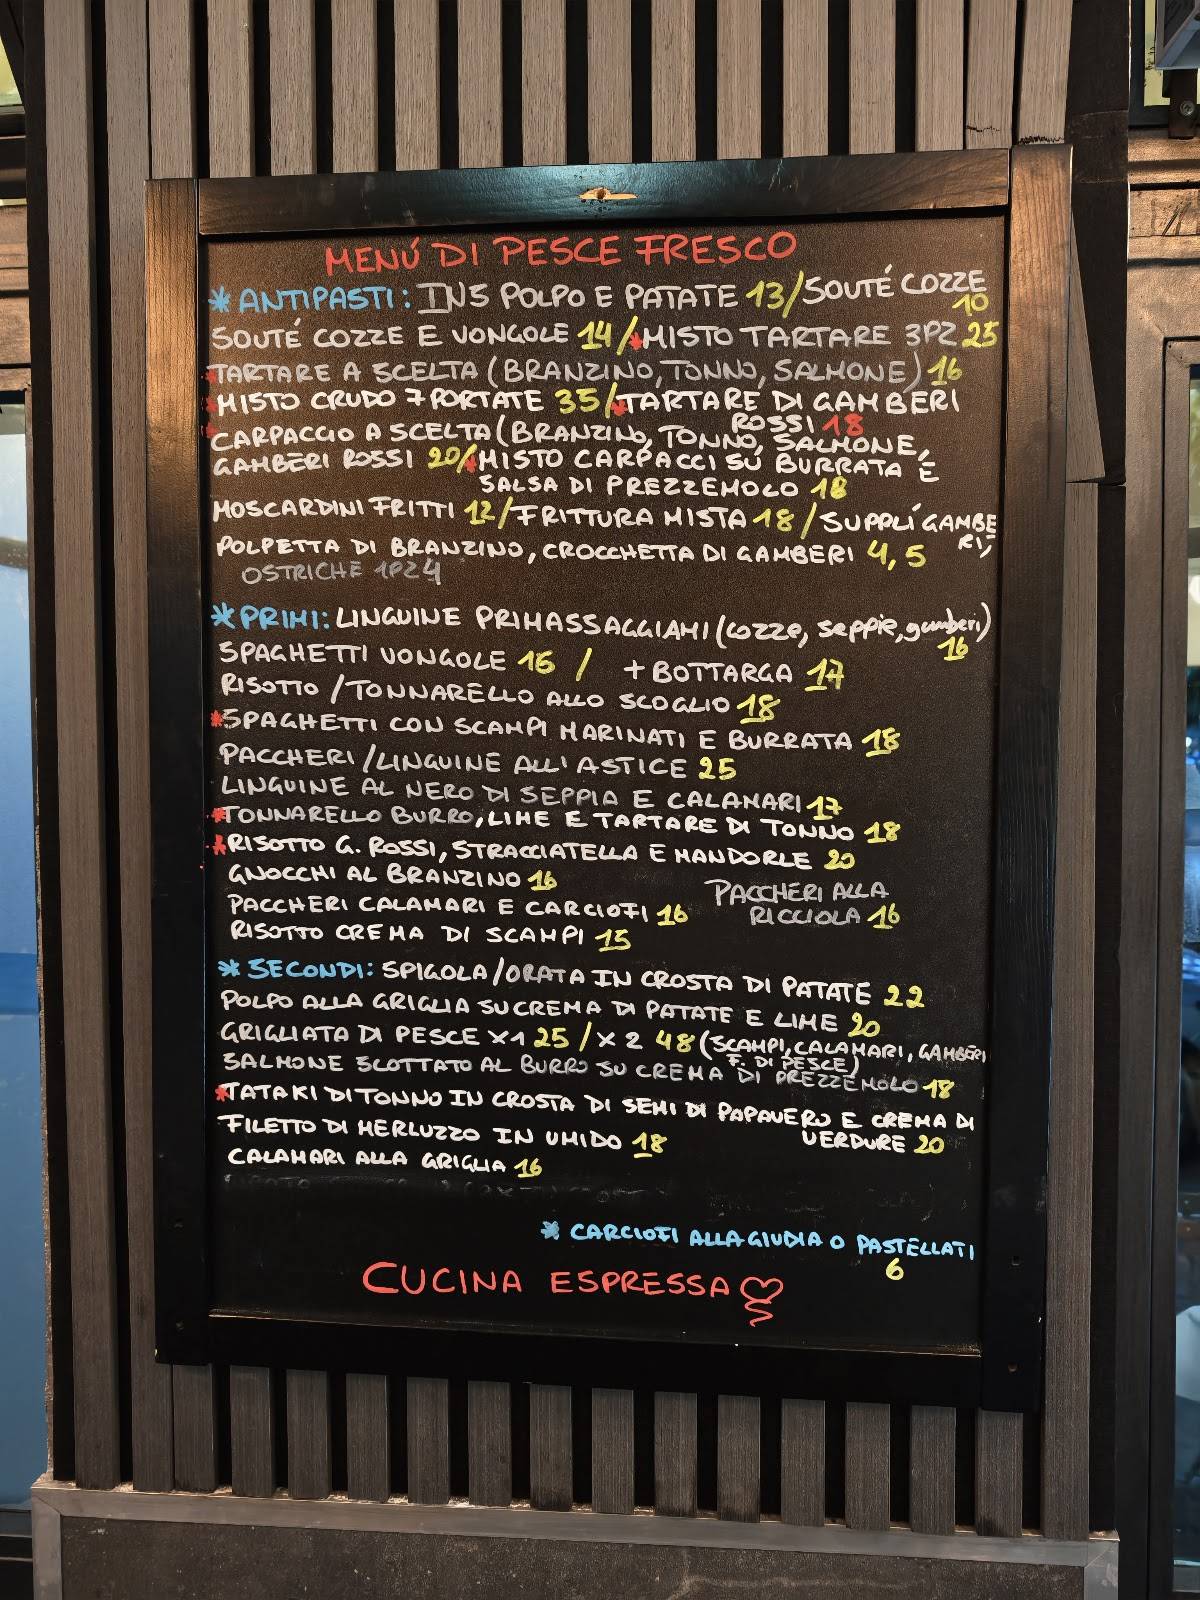 MENÚ DI PESCE FRESCO
* ANTIPASTI: INS POLPO E PATATE 13/SOUTÉ COZZE
10
SOUTÉ COZZE E VONGOLE 14/*MISTO TARTARE 3PZ 25
*TARTARE A SCELTA (BRANZINO, TONNO, SALMONE) 16
*MISTO CRUDO 7 PORTATE 35/*TARTARE DI GAMBERI
ROSSI 18
*CARPACCIO A SCELTA (BRANZINO, TONNO, SALMONE,
GAMBERI ROSSI 20/*MISTO CARPACCI SÚ BURRATA E
SALSA DI PREZZEMOLO 18
MOSCARDINI FRITTI 12/FRITTURA MISTA 18/SUPPLÍ GAMBE
RI,
POLPETTA DI BRANZINO, CROCCHETTA DI GAMBERI 4,5
OSTRICHE 1PZ 4
*PRIMI: LINGUINE PRIMASSAGGIAMI (cozze, seppie, gamberi)
16
SPAGHETTI VONGOLE 15 / + BOTTARGA 17
RISOTTO / TONNARELLO ALLO SCOGLIO 18
*SPAGHETTI CON SCAMPI MARINATI E BURRATA 18
PACCHERI/LINGUINE ALL' ASTICE 25
LINGUINE AL NERO DI SEPPIA E CALAMARI 17
*TONNARELLO BURRO, LIME E TARTARE DI TONNO 18
*RISOTTO G. ROSSI, STRACCIATELLA E MANDORLE 20
GNOCCHI AL BRANZINO 16
PACCHERI ALLA
PACCHERI CALAMARI E CARCIOFI 16
RICCIOLA 16
RISOTTO CREMA DI SCAMPI 15
* SECONDI: SPIGOLA/ORATA IN CROSTA DI PATATE 22
POLPO ALLA GRIGLIA SU CREMA DI PATATE E LIME 20
GRIGLIATA DI PESCE X1 25 / X 2 48 (SCAMPI, CALAMARI, GAMBERI
F. DI PESCE)
SALMONE SCOTTATO AL BURRO SU CREMA DI PREZZEMOLO 18
*TATAKI DI TONNO IN CROSTA DI SEMI DI PAPAVERO E CREMA DI
VERDURE 20
FILETTO DI MERLUZZO IN UMIDO 18
CALAMARI ALLA GRIGLIA 16
* CARCIOFI ALLA GIUDIA O PASTELLATI
6
CUCINA ESPRESSA